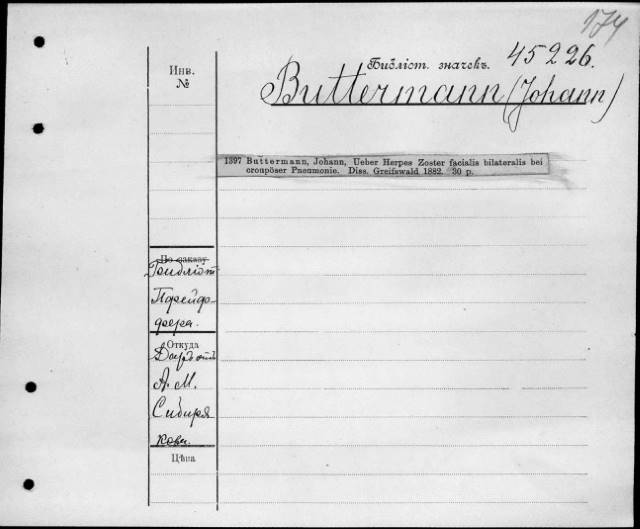 174
Библіот. значекъ. 45226.
Инв.
№
Buttermann (Johann)
1397 Buttermann, Johann, Ueber Herpes Zoster facialis bilateralis bei
croupöser Pneumonie. Diss. Greifswald 1882. 30 p.
По заказу
Библіот.
Пфейфо-
фера.
Откуда
Даръ отъ
А. М.
Сибиря
кова.
Цѣна